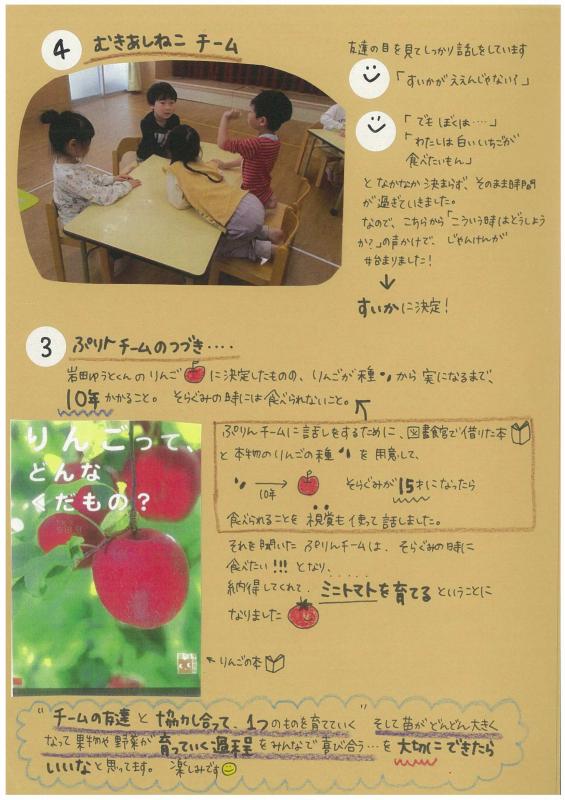 4 むきあしねこ チーム
友達の目を見てしっかり話しをしています
「すいかがええんじゃない?」
「でもぼくは・・・・」
「わたしは白いいちごが
食べたいもん」
となかなか決まらず、そのまま時間
が過ぎていきました。
なので、こちらから「こういう時はどうしよう
か?」の声かけで、じゃんけんが
始まりました!
↓
すいかに決定!
3 ぷりんチームのつづき・・・・
岩田ゆうとくんのりんごに決定したものの、りんごが種から実になるまで、
10年かかること。 そらぐみの時には食べられないこと。
ぷりんチームに話しをするために、図書館で借りた本
と本物のりんごの種を用意して、
→ 10年
そらぐみが15才になったら
食べられることを視覚も使って話しました。
それを聞いたぷりんチームは、そらぐみの時に
食べたい!!!となり、
納得してくれて、ミニトマトを育てるということに
なりました
りんごって、
どんな
くだもの?
←りんごの本
"チームの友達と協力し合って、1つのものを育てていく" そして苗がどんどん大きく
なって果物や野菜が育っていく過程をみんなで喜び合う…を大切にできたら
いいなと思ってます。 楽しみです